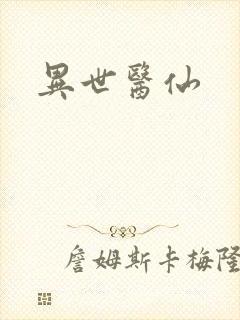 異世醫仙
詹姆斯卡梅隆